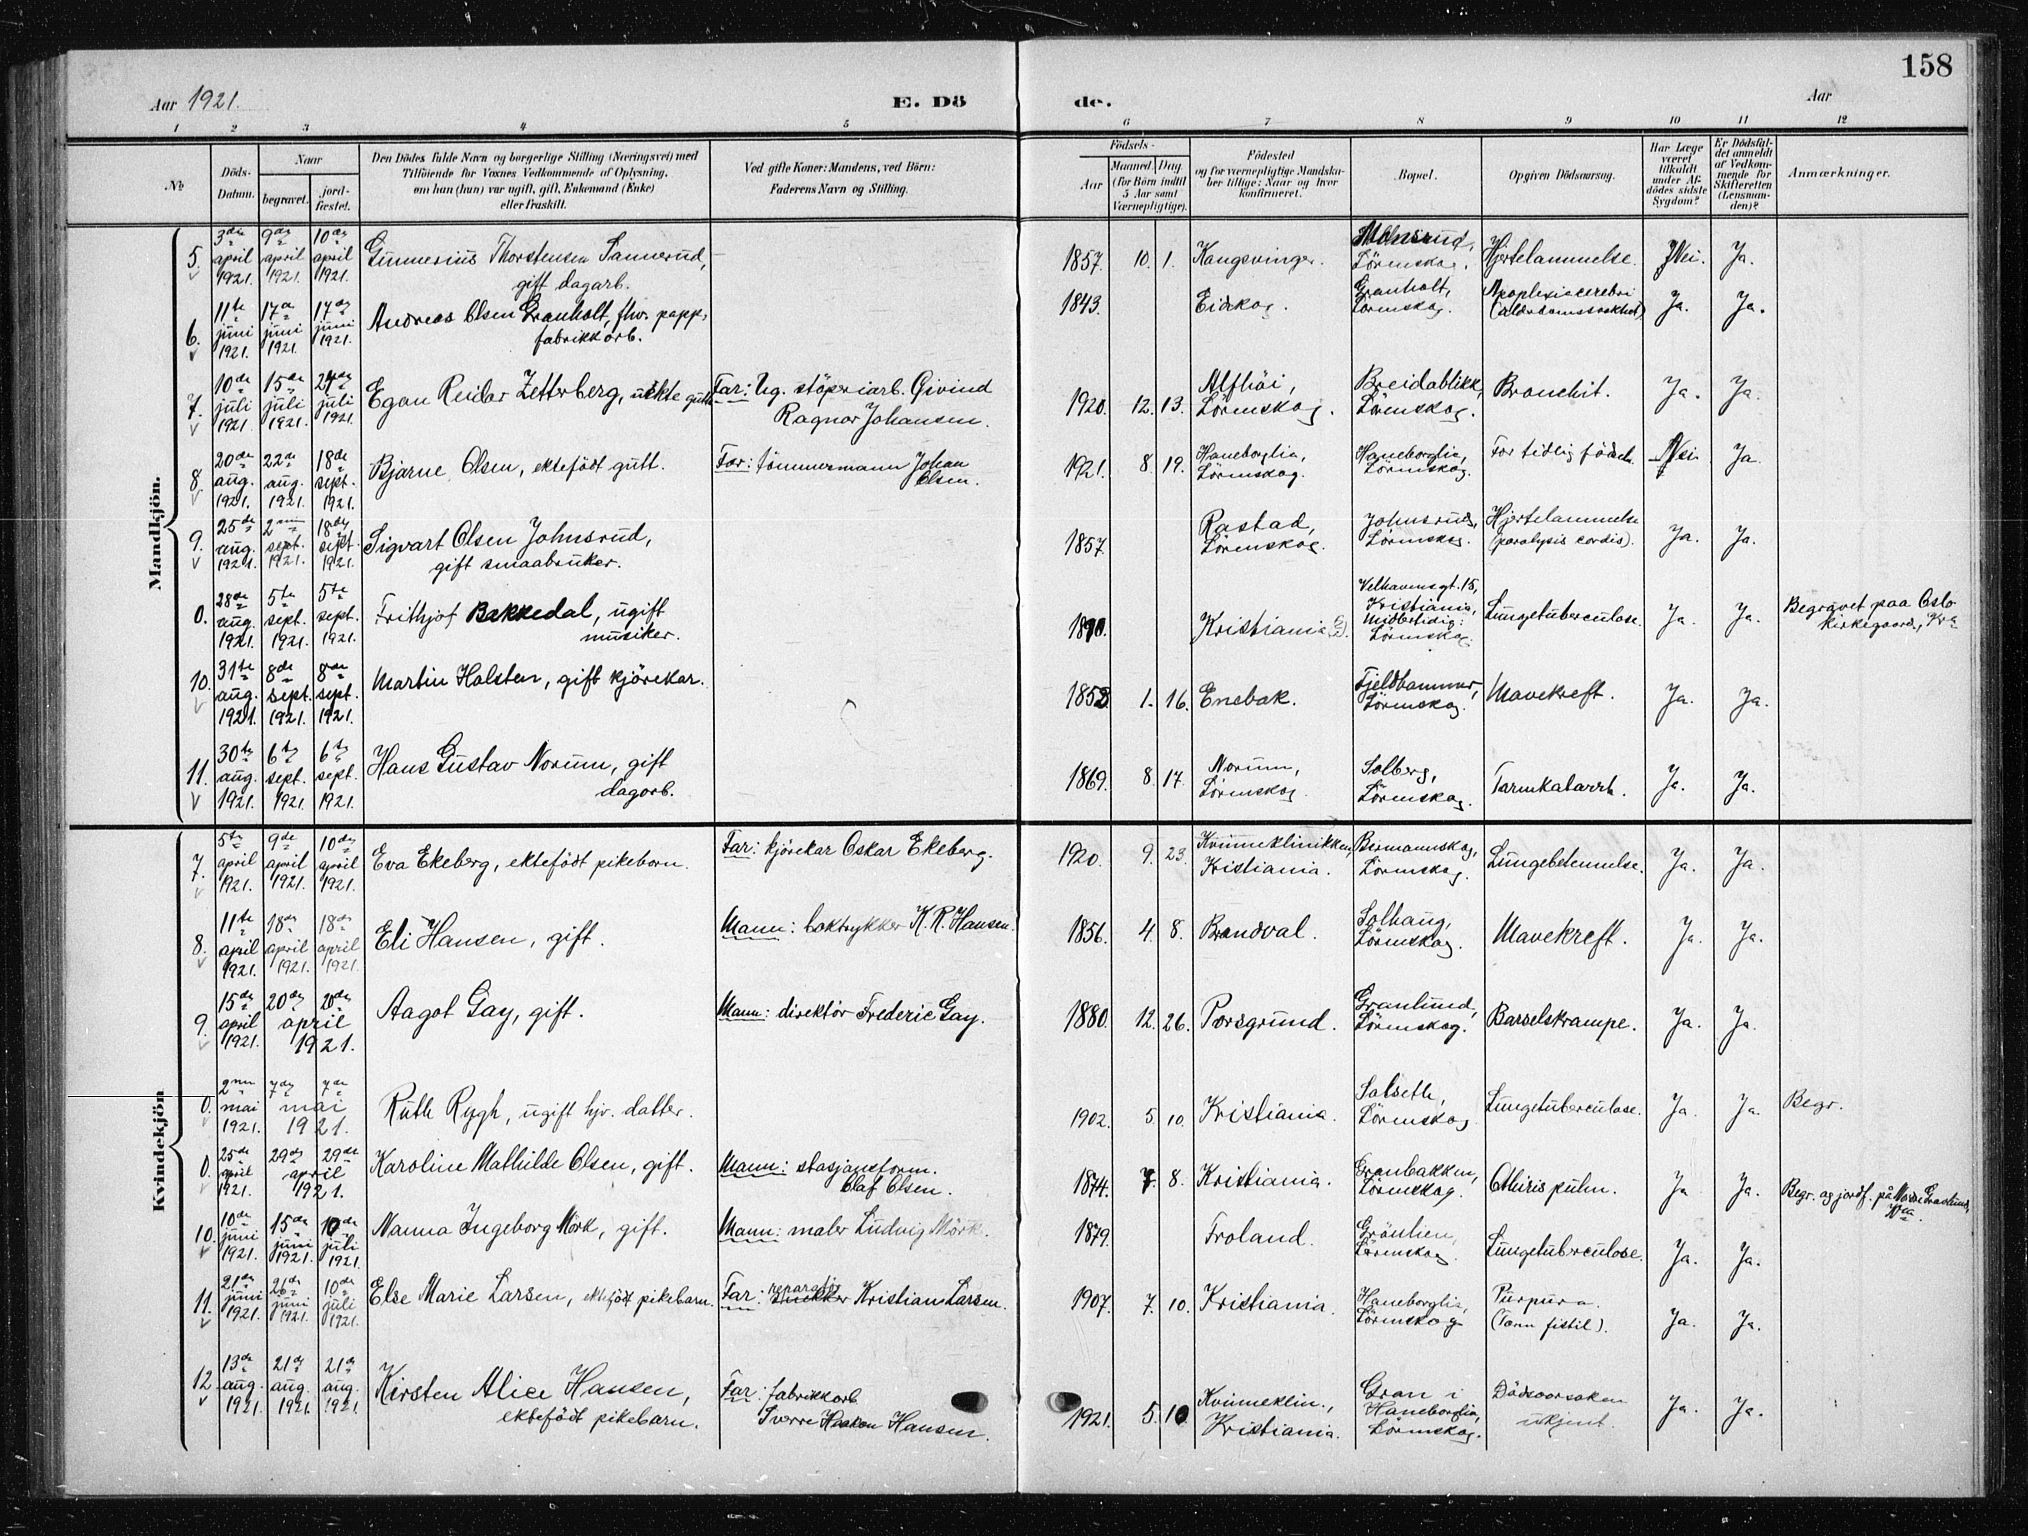 158
Aar 1921.
E. Dö
de.
Aar
1 2 3 4 5 6 7 8 9 10 11 12
№
Döds-
Datum.
Naar
begravet.
jord-
fæstet.
Den Dödes fulde Navn og borgerlige Stilling (Næringsvei) med
Tilföiende for Voxnes Vedkommende af Oplysning,
om han (hun) var ugift, gift, Enkemand (Enke)
eller fraskilt.
Ved gifte Koner: Mandens, ved Börn:
Faderens Navn og Stilling.
Födsels-
Aar
Maaned
Dag
(for Börn indtil
5 Aar samt
Værnepligtige).
Födested
og for værnepligtige Mandska-
ber tillige: Naar og hvor
konfirmeret.
Bopæl.
Opgiven Dödsaarsag.
Har Læge
været
tilkaldt
under Af-
dödes sidste
Sygdom?
Er Dödsfal-
det anmeldt
af Vedkom-
mende for
Skifteretten
(Lensman-
den)?
Anmærkninger.
Mandkjön.
5. 3die april 1921. 9de april 1921. 10de april 1921. Gunnerius Thorstensen Sannerud, gift dagarb. – 1857. 10. 1. Kongsvinger. Lörenskog. Hjertelammelse. Nei. Ja.
6. 11te juni 1921. 17de juni 1921. 17de juni 1921. Andreas Olsen Granholt, fhv. papp-
fabrikkarb. 1843. Eidskog. Granholt, Lörenskog. Apoplexia cerebri Ja. Ja.
7. 10de juli 1921. 15de juli 1921. 24de juli 1921. Egon Reidar Zetterberg, uekte gutt. Far: Ug. stöperiarb. Öivind
Ragnar Johansen. 1920. 12. 13. Alfhöi, Lörenskog. Breidablikk, Lörenskog. Bronchit. Ja. Ja.
8. 20de aug. 1921. 22de aug. 1921. 18de sept. 1921. Bjarne Olsen, ektefödt gutt. Far: tömmermann Johan
Olsen. 1921. 8. 19. Haneborglia, Lörenskog. Haneborglia, Lörenskog. For tidlig födsel. Nei Ja.
9. 25de aug. 1921. 2nen sept. 1921. 18de sept. 1921. Sigvart Olsen Johnsrud,
gift smaabruker. 1857. Rastad, Lörenskog. Johnsrud, Lörenskog. Hjertelammelse
(paralysis cordis). Ja. Ja.
0. 28de aug. 1921. 5te sept. 1921. 5te sept. 1921. Frithjof Bakkedal, ugift
musiker. Kristiania Velhavensgt. 15, Kristiania, Midlertidig: Lörenskog. Lungetuberculose. Ja. Ja. Begravet paa Oslo
kirkegaard, Kra
10. 31te aug. 1921. 8de sept. 1921. 8de sept. 1921. Martin Holsten, gift kjörekar. 1. 16. Enebak. Fjeldhammer, Lörenskog. Mavekreft. Ja. Ja.
11. 30te aug. 1921. 6te sept. 1921. 6te sept. 1921. Hans Gustav Norum, gift
dagarb. 1869. 8. 17. Norum, Lörenskog. Solberg, Lörenskog. Tarmkatarrh. Ja. Ja.
Kvindekjön
7. 5te april 1921. 9de april 1921. 10de april 1921. Eva Ekeberg, ektefödt pikebarn. Far: kjörekar Oskar Ekeberg. 1920. 9. 23. Kvinneklinikken, Kristiania. Lörenskog. Lungebetennelse. Ja. Ja.
8. 11te april 1921. 18de april 1921. 18de april 1921. Eli Hansen, gift. Mann: boktrykker K. R. Hansen. 1856. 4. 8. Brandval. Solhaug, Lörenskog. Mavekreft. Ja. Ja.
9. 15de april 1921. 20de 20de april 1921. Aagot Gay, gift. Mann: direktör Frederic Gay. 1880. 12. 26. Porsgrund. Granlund, Lörenskog. Barselskrampe. Ja. Ja.
0. 2nen mai 1921. 7de 7de mai 1921. Ruth Rygh, ugift hjv. datter. 1902. 5. 10. Kristiania. Lörenskog. Lungetuberculose. Ja. Ja. Begr.
0. 25de april 1921. 29de 29de april 1921. Karoline Mathilde Olsen, gift. Mann: stasjonsform.
Olaf Olsen. 1874. 7. 8. Kristiania. Granbakken, Lörenskog. Phthisis pulm. Ja Ja. Begr. og jordf. på Nordre Gravlund,
Kra.
10. 10de juni 1921. 15de juni 1921. 10de juli 1921. Nanna Ingeborg Mörk, gift. Mann: maler Ludvig Mörk. 1879. Froland. Grönlien, Lörenskog. Lungetuberculose. Ja. Ja.
11. 21de juni 1921. 26de juni 1921. 10de juli 1921. Else Marie Larsen, ektefödt pikebarn. Far: reparatör Kristian Larsen. 1907. 7. 10. Kristiania. Haneborglia, Lörenskog Purpura.
(Tarm fistil). Ja. Ja.
12 13de aug. 1921. 21de aug. 1921. 21de aug. 1921. Kirsten Alice Hansen,
ektefödt pikebarn. Far: fabrikkarb
Sverre Haakon Hansen. 1921. 5. 10 Kvinneklin., Kristiania. Gran i Haneborglia, Lörenskog. Dödsaarsaken
ukjent. Ja. Ja.